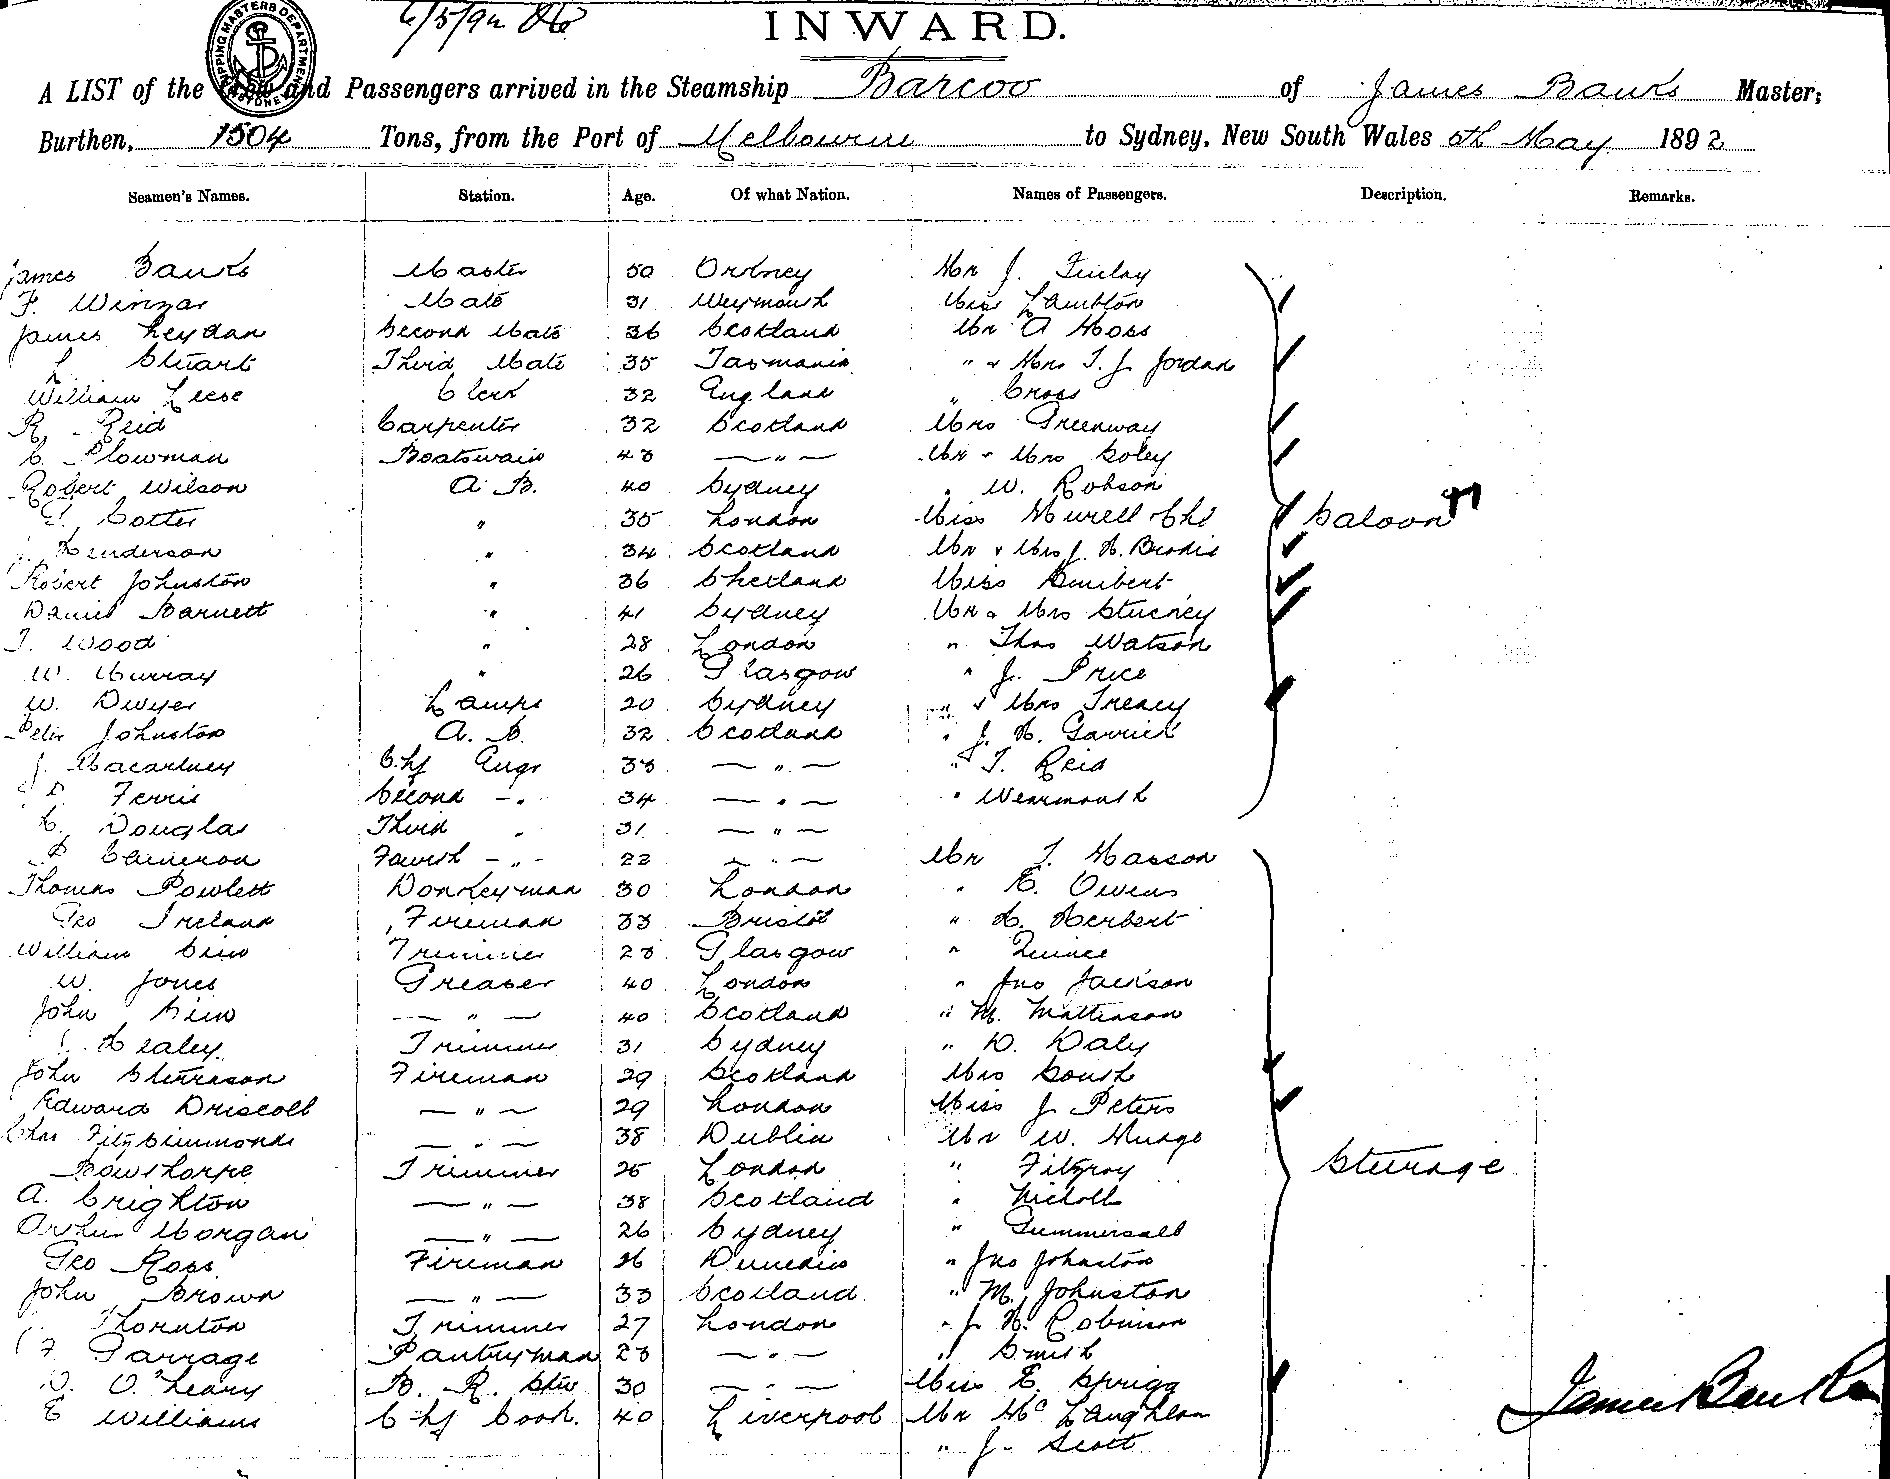 6/5/92
INWARD.
A LIST of the Crew and Passengers arrived in the Steamship Barcoo of James Banks Master;
Burthen, 1504 Tons, from the Port of Melbourne to Sydney, New South Wales 6th May 1892
Seamen's Names. Station. Age. Of what Nation. Names of Passengers. Description. Remarks.
James Banks Master 50 Orkney Mr J. Finlay
F. Winzar Mate 31 Weymouth Miss Lambton
James Leydan Second Mate 36 Scotland Mr A Moss
L. Stuart Third Mate 35 Tasmania " & Mrs T. J. Jordan
William Leese Clerk 32 England " Cross
R. Reid Carpenter 32 Scotland Mrs Greenway
C. Plowman Boatswain 43 — " — Mr & Mrs Soley
Robert Wilson A. B. 40 Sydney " W. Robson
Cotter " 35 London Miss Murell Saloon
J. Henderson " 34 Scotland Mr & Mrs J. H. Brodie
Robert Johnston " 36 Shetland Miss
Daniel Barnett " 41 Sydney Mr & Mrs Stuckey
T. Wood " 28 London " Thos Watson
W. Murray " 26 Glasgow " J. Price
W. Dwyer Lamps 20 Sydney " & Mrs Treacy
Peter Johnston A. B. 32 Scotland " J. H. Garrick
J. Macartney Chf Engr 33 — " — " T. Reid
Ferris Second — " 34 — " — " Wearmouth
Douglas Third " 31 — " —
Cameron Fourth — " — 22 — " — Mr T. Hasson
Thomas Powlett Donkeyman 30 London " E. Owens
Geo Ireland Fireman 33 Bristol " H. Herbert
William Sim Trimmer 23 Glasgow " Quince
W. Jones Greaser 40 London " Jno Jackson
John Sim — " — 40 Scotland " M. Mattinson
Healey Trimmer 31 Sydney " D. Daly
John Stevenson Fireman 29 Scotland Mrs
Edward Driscoll — " — 29 London Miss J. Peters
Chas Fitzsimmonds — " — 38 Dublin Mr W.
Bowthorpe Trimmer 25 London " Fitzroy Steerage
A. Crighton — " — 38 Scotland " Nicholl
Arthur Morgan — " — 26 Sydney " Gummersall
Geo Ross Fireman 26 Dunedin " Jno Johnston
John Brown — " — 33 Scotland " M. Johnston
Thornton Trimmer 27 London " J. H. Robinson
F Garrage Pantryman 23 — " — " Smith
D. O'Leary B. R. Stw 30 — " — Miss E. Sprigg
E Williams Chf Cook 40 Liverpool Mr McLaughlan James Banks
" J. Scott